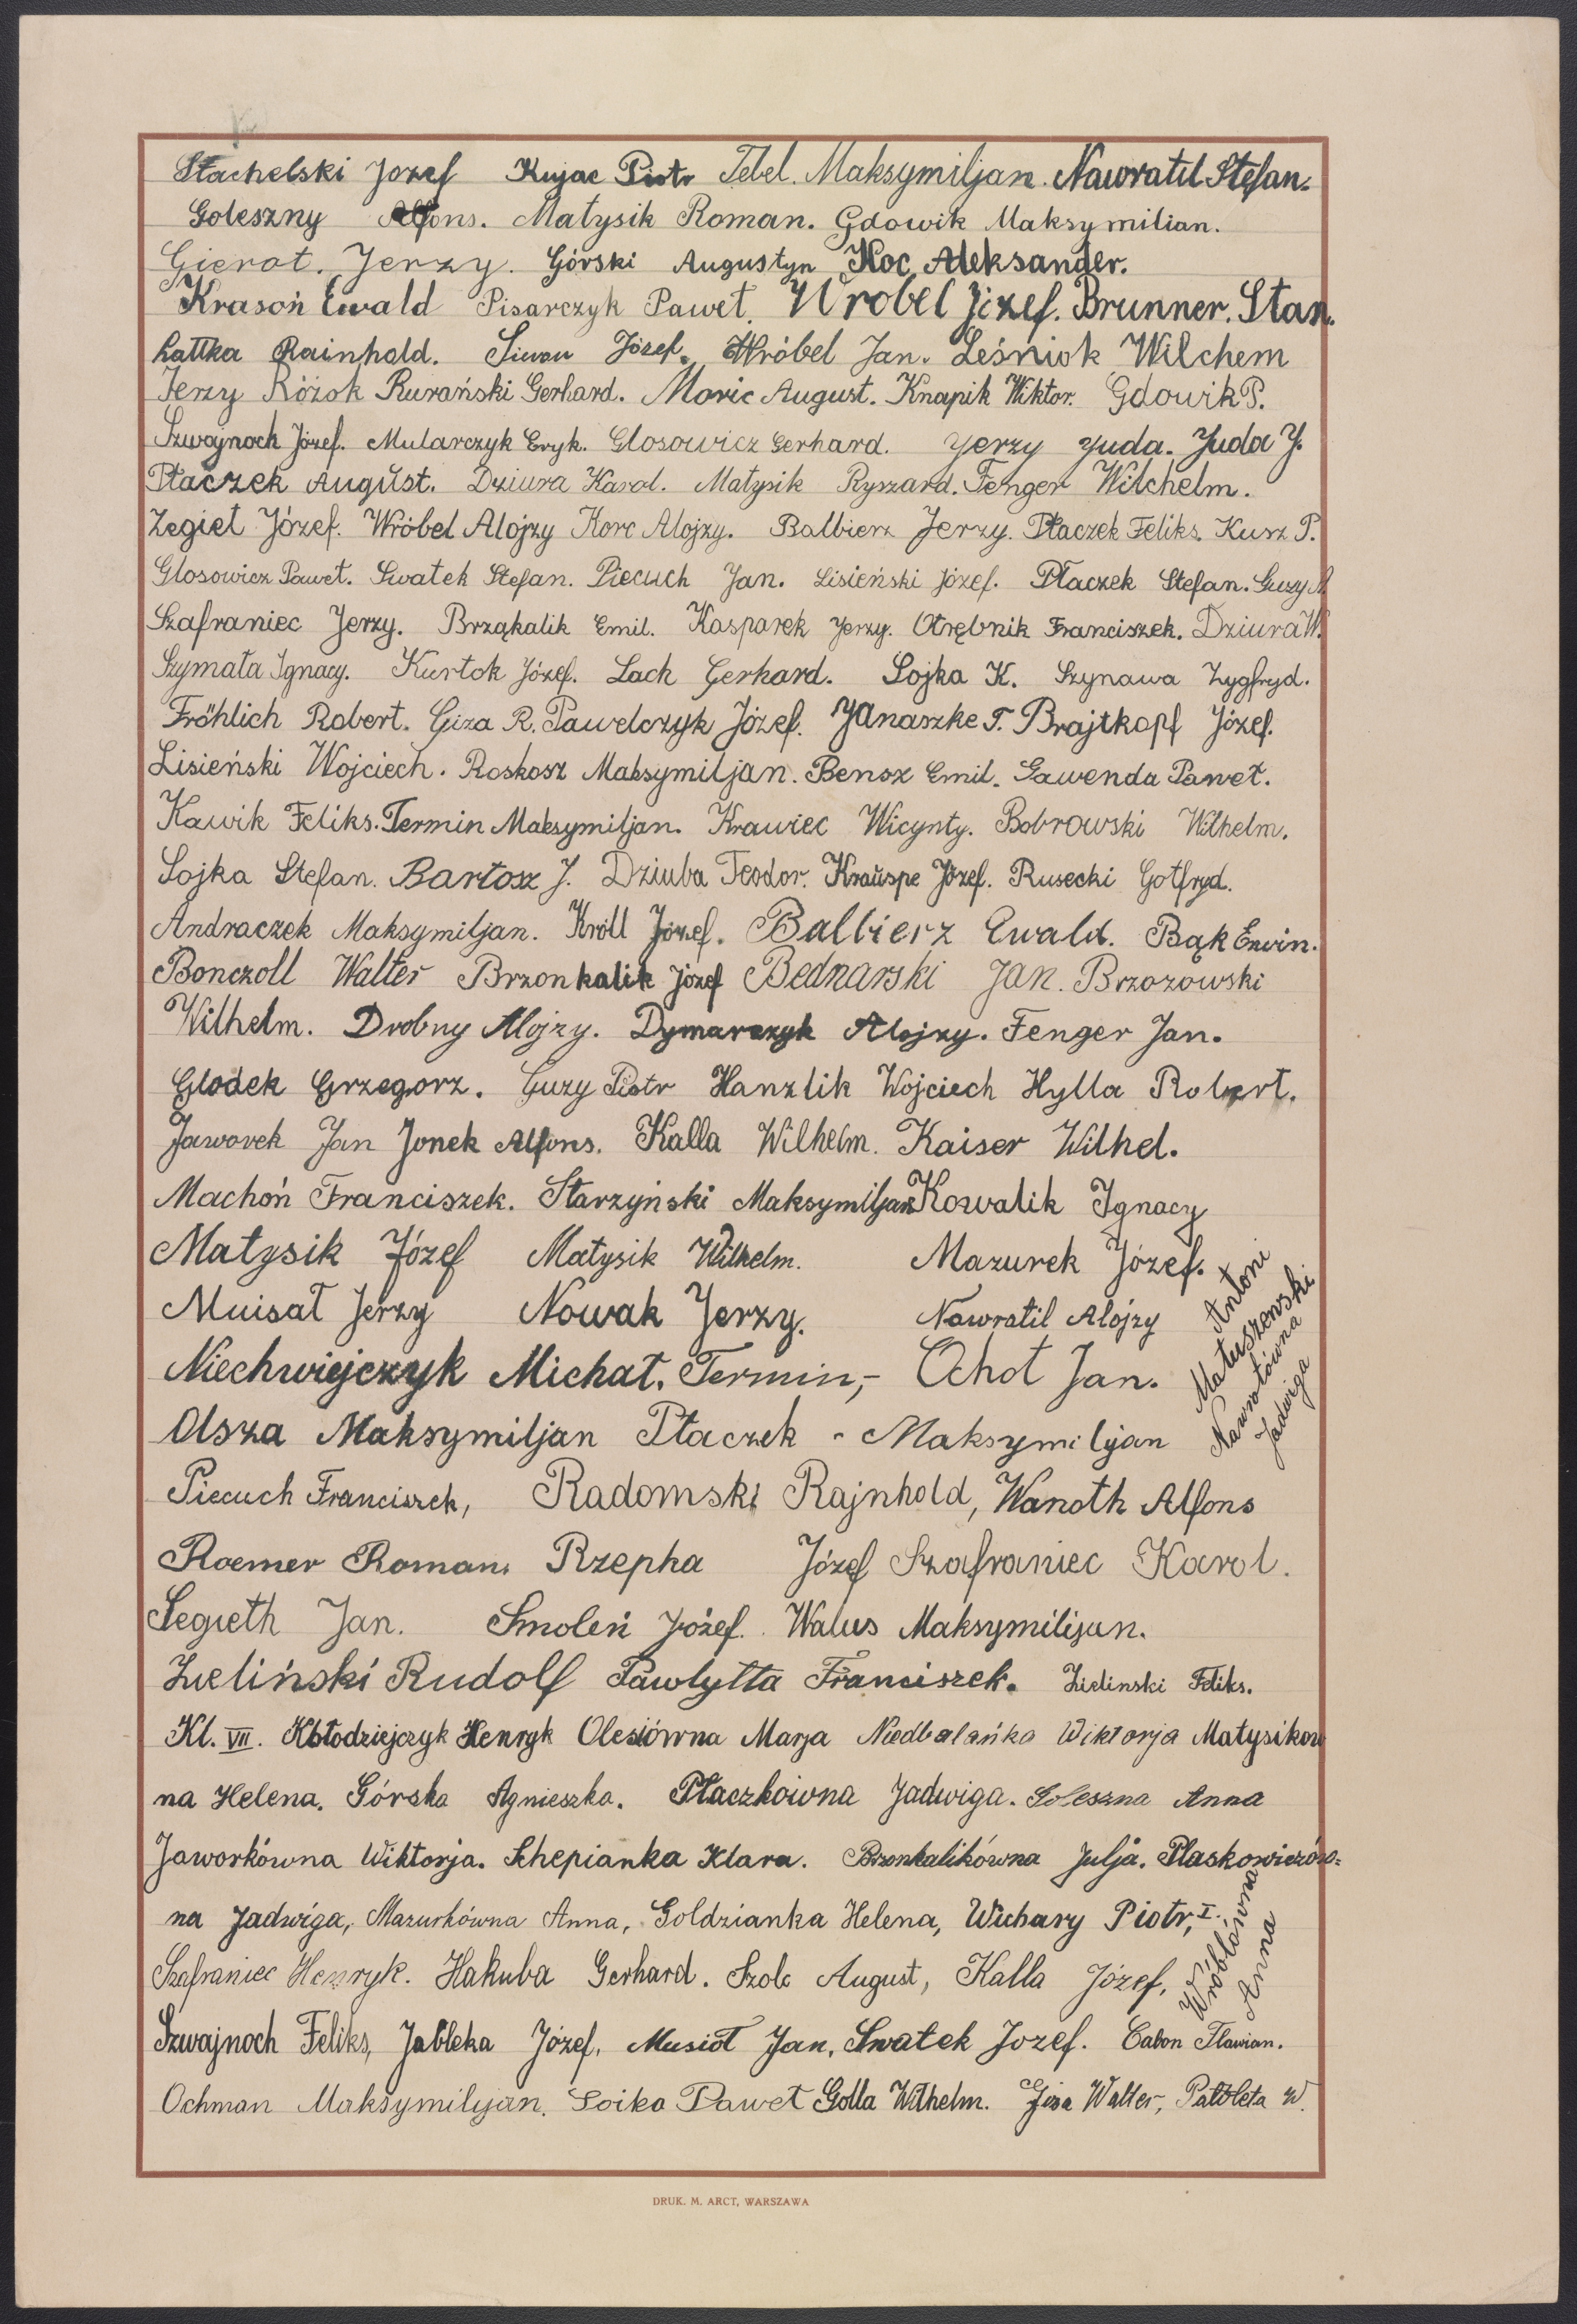 Stachelski Jozef Kujac Piotr Tebel. Maksymiljan. Nawratil Stefan.
Goleszny Alfons. Matysik Roman. Gdowik Maksymilian.
Gierot. Jerzy. Górski Augustyn Koc Aleksander.
Krasoń Ewald Pisarczyk Paweł. Wrobel Józef. Brunner. Stan.
Łattka Rainhold. Siwon Józef. Wróbel Jan. Leśniok Wilchem
Jerzy Różok Rurański Gerhard. Moric August. Knapik Wiktor. Gdowik P.
Szwajnoch Józef. Mularczyk Eryk. Glosowicz Gerhard. Jerzy Juda. Juda J.
Płaczek August. Dziura Karol. Matysik Ryszard. Fenger Wilchelm.
Zegiet Józef. Wróbel Alojzy Korc Alojzy. Balbierz Jerzy. Płaczek Feliks. Kusz P.
Glosowicz Paweł. Swatek Stefan. Piecuch Jan. Lisieński Józef. Płaczek Stefan. Guzy
Szafraniec Jerzy. Brząkalik Emil. Kasparek Jerzy. Otrębnik Franciszek. Dziura W.
Szymała Ignacy. Kurtok Józef. Lach Gerhard. Sojka K. Szynawa Zygfryd.
Fröhlich Robert. Giza R. Pawelczyk Józef. Janaszke T. Brajtkopf Józef.
Lisieński Wojciech. Roskosz Maksymiljan. Bensz Emil. Gawenda Paweł.
Kawik Feliks. Termin Maksymiljan. Krawiec Wicynty. Bobrowski Wilhelm.
Sojka Stefan. Bartosz J. Dziuba Teodor. Krauspe Józef. Rusecki Gotfryd.
Andraczek Maksymiljan. Król Józef. Balbierz Ewald. Bąk Erwin.
Bonczoll Walter Brzonkalik Józef Bednarski Jan. Brzozowski
Wilhelm. Drobny Alojzy. Dymarczyk Alojzy. Fenger Jan.
Glodek Grzegorz. Guzy Piotr Hanzlik Wojciech Hylla Robert.
Jaworek Jan Jonek Alfons. Kalla Wilhelm. Kaiser Wilhel.
Machoń Franciszek. Starzyński Maksymiljan Kowalik Ignacy
Matysik Józef Matysik Wilhelm. Mazurek Józef.
Muisał Jerzy Nowak Jerzy. Nawratil Alojzy
Matuszenski Antoni
Nawrotówna Jadwiga
Niechwiejczyk Michał. Termin,- Ochot Jan.
Olsza Maksymiljan Płaczek - Maksymiljan
Piecuch Franciszek, Radomski Rajnhold, Wanoth Alfons
Roemer Roman. Rzepka Józef Szafraniec Karol.
Segieth Jan. Smoleń Józef. Walus Maksymilijan.
Zieliński Rudolf Pawlytta Franciszek. Zielinski Feliks.
Kl. VII. Kłodziejczyk Henryk Olesiówna Marja Niedbalańka Wiktorja Matysikow
na Helena. Górska Agnieszka. Płaczkówna Jadwiga. Goleszna Anna
Jaworkówna Wiktorja. Schepianka Klara. Brzonkalikówna Julja. Plaskowiczów=
na Jadwiga, Mazurkówna Anna, Goldzianka Helena, Wichary Piotr, I.
Wróblówna Anna
Szafraniec Henryk. Hakuba Gerhard. Szolc August, Kalla Józef,
Szwajnoch Feliks, Jabłeka Józef, Musioł Jan, Swatek Jozef. Cabon Flawian.
Ochman Maksymilijan. Soika Paweł Golla Wilhelm. Giza Walter, W.
DRUK. M. ARCT, WARSZAWA